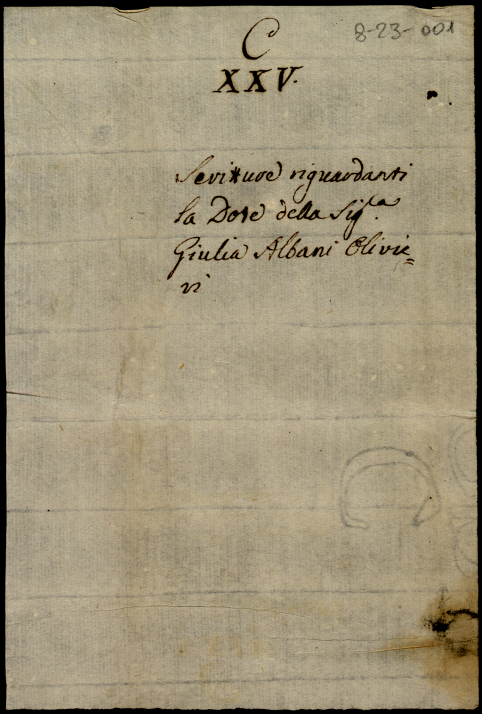 8-23-001
C
XXV.
Scritture riguardanti
la Dote della Sig.ª
Giulia Albani Olivie=
ri
C